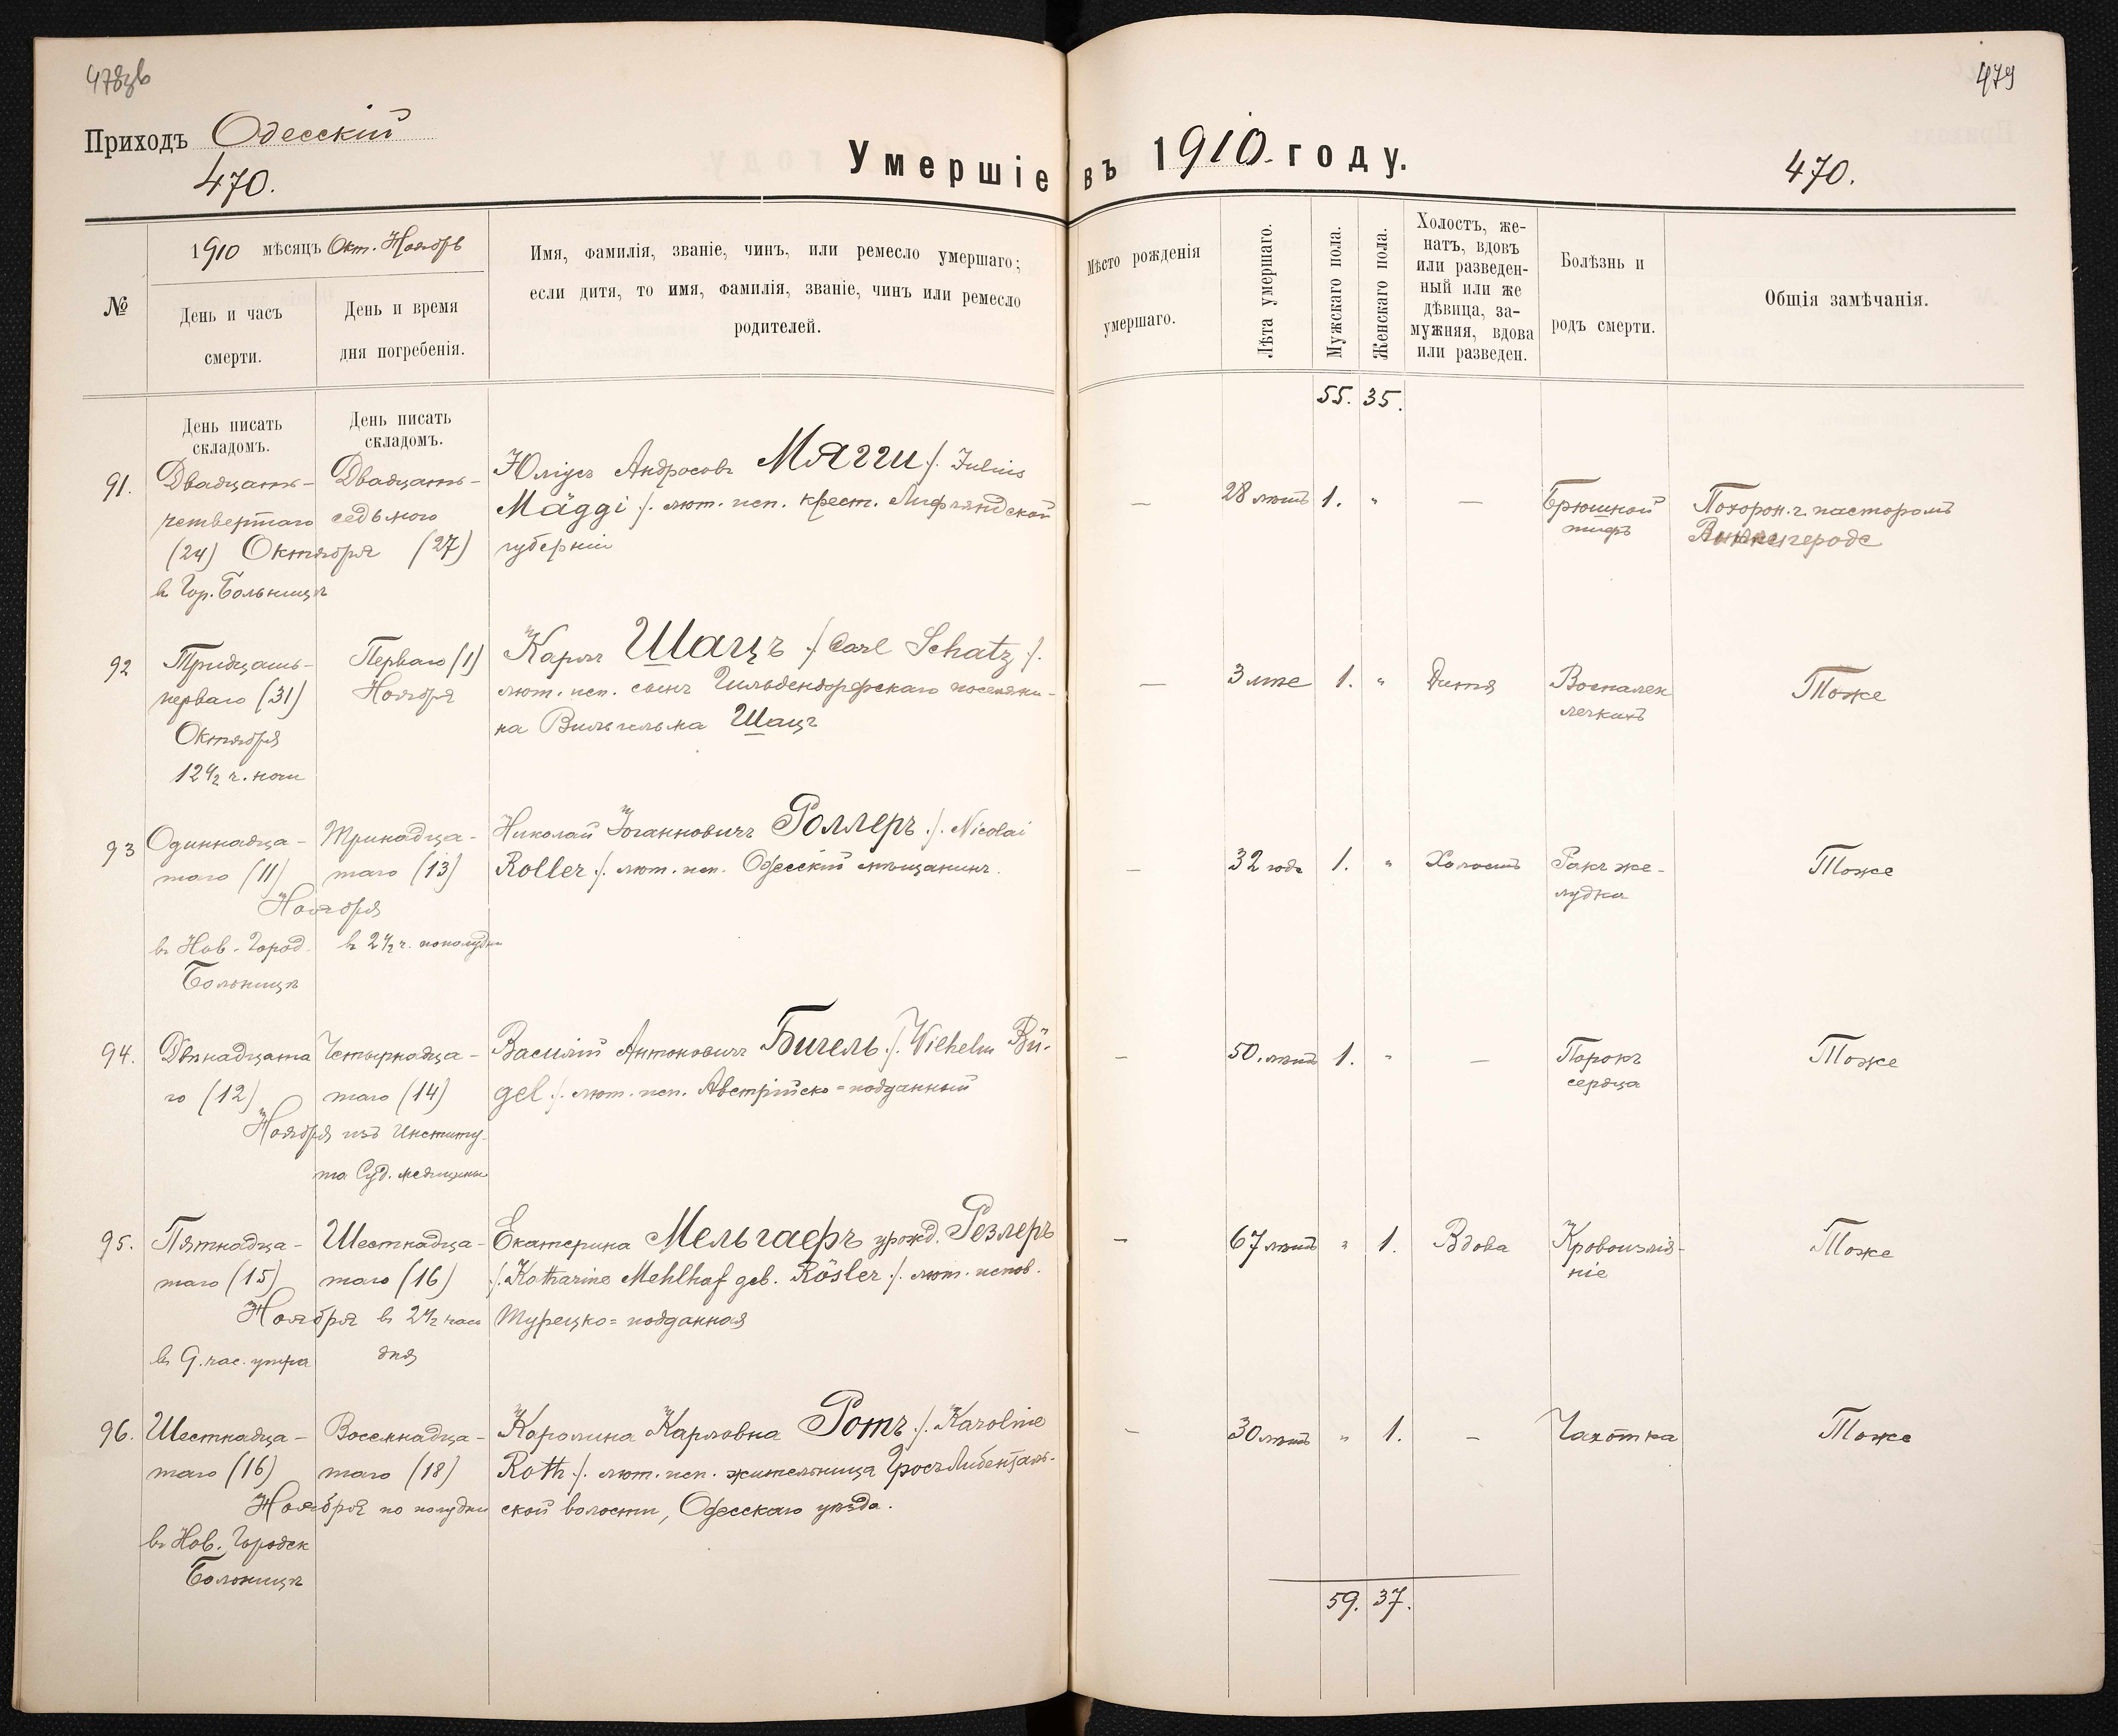 479
Приходъ Одесскій
470.
Умершіе въ 1910 году.
470.
№
1910 мѣсяцъ Окт. Ноябрь
День и часъ
смерти.
День и время
дня погребенія.
Имя, фамилія, званіе, чинъ, или ремесло умершаго;
если дитя, то имя, фамилія, званіе, чинъ или ремесло
родителей.
Мѣсто рожденія
умершаго.
Лѣта умершаго.
Мужскаго пола.
Женскаго пола.
Холостъ, же-
натъ, вдовъ
или разведен-
ный или же
дѣвица, за-
мужняя, вдова
или разведен.
Болѣзнь и
родъ смерти.
Общія замѣчанія.
55. 35.
День писать
складомъ.
День писать
складомъ.
91.
Двадцать-
четвертаго
(24) Октября
в Гор. Больницѣ
Двадцать-
седьмого
(27)
Юліусъ Андросовъ Мягги ./. Julius
Mäggi ./. лют. исп. крест. Лифляндской
губерніи
—
28 лѣтъ
1.
"
—
Брюшной
тифъ
Похорон. г. пасторомъ
92
Тридцать-
перваго (31)
Октября
12½ ч. ночи
Перваго (1)
Ноября
Карлъ Шацъ ./. Carl Schatz ./.
лют. исп. сынъ Гильдендорфскаго поселяни-
на Вильгельма Шацъ
—
3 лѣт
1.
"
Дитя
Воспален
легкихъ
Тоже
93
Одиннадца-
таго (11)
Ноября
в Нов. Город.
Больницѣ
Тринадца-
таго (13)
в 2½ ч. пополудни
Николай Іоганновичъ Роллеръ ./. Nicolai
Roller ./. лют. исп. Одесскій мѣщанинъ.
—
32 года
1.
"
Холостъ
Ракъ же-
лудка
Тоже
94.
Двѣнадцата
го (12)
Ноября
Четырнадца-
таго (14)
изъ Институ-
та Суд. медицины
Василій Антоновичъ Бигель ./. Wilhelm Bü-
gel ./. лют. исп. Австрійско=подданный
—
50. лѣтъ
1.
"
—
Порокъ
сердца
Тоже
95.
Пятнадца-
таго (15)
Ноября
в 9. час. утра
Шестнадца-
таго (16)
в 2½ час
дня
Екатерина Мельгафъ урожд. Резлеръ
./. Katharine Mehlhaf geb. Rösler ./. лют. испов.
Турецко=подданная
—
67 лѣтъ
"
1.
Вдова
Кровоизлія-
ніе
Тоже
96.
Шестнадца-
таго (16)
Ноября
в Нов. Городск
Больницѣ
Восемнадца-
таго (18)
по полудни
Каролина Карловна Ротъ ./. Karoline
Roth ./. лют. исп. жительница Гросъ Либенталь-
ской волости, Одесскаго уѣзда.
—
30 лѣтъ
"
1.
—
Чахотка
Тоже
59. 37.